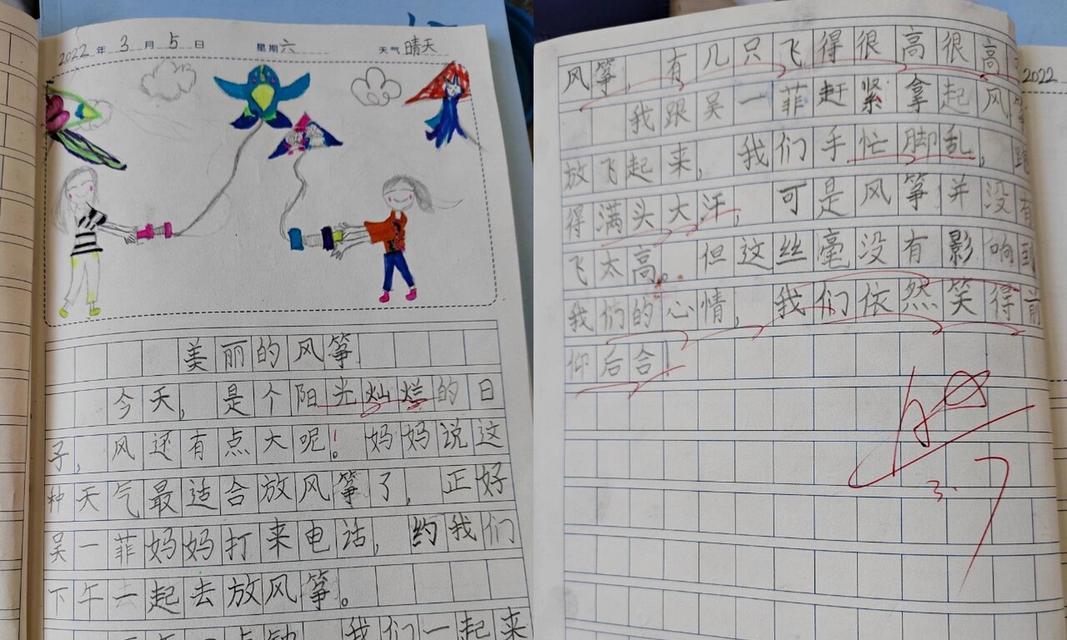 2022年3月5日 星期六 天气 晴天
美丽的风筝
今天,是个阳光灿烂的日
子,风还有点大呢!妈妈说这
种天气最适合放风筝了,正好
吴一菲妈妈打来电话,约我们
下午一起去放风筝。
我们一起来
风筝,有几只飞得很高很高
我跟吴一菲赶紧拿起风
放飞起来,我们手忙脚乱,跑
得满头大汗,可是风筝并没有
飞太高。但这丝毫没有影响到
我们的心情,我们依然笑得前
仰后合!
3.7
2022